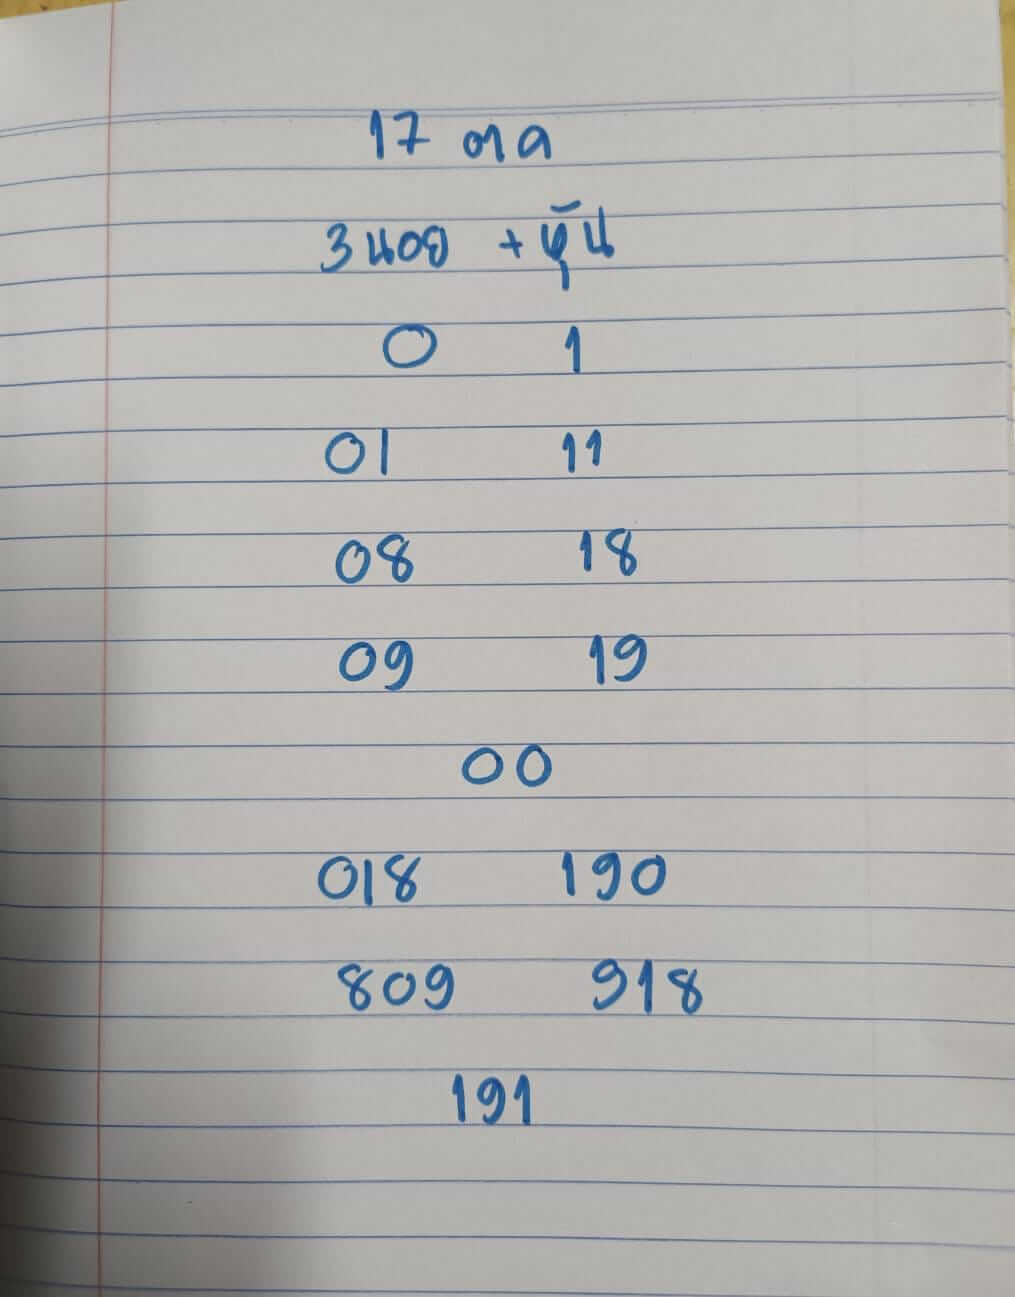 17 ตาค
ฮนอย + หุ้น
0 1
01 11
08 18
09 19
00
018 190
809 918
191